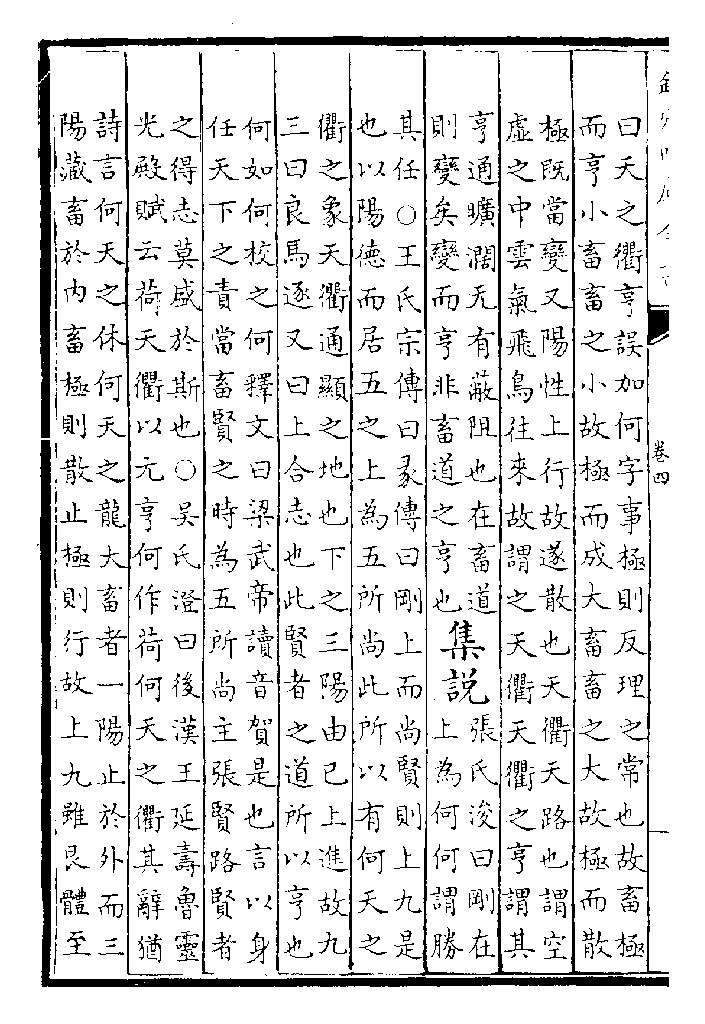 卷四
曰天之衢亨誤加何字事極則反理之常也故畜極
而亨小畜畜之小故極而成大畜畜之大故極而散
極既當變又陽性上行故遂散也天衢天路也謂空
虛之中雲氣飛鳥往來故謂之天衢天衢之亨謂其
亨通曠濶无有蔽阻也在畜道
則變矣變而亨非畜道之亨也
集說
張氏浚曰剛在
上為何何謂勝
其任○王氏宗傳曰彖傳曰剛上而尚賢則上九是
也以陽德而居五之上為五所尚此所以有何天之
衢之象天衢通顯之地也下之三陽由已上進故九
三曰良馬逐又曰上合志也此賢者之道所以亨也
何如何校之何釋文曰梁武帝讀音賀是也言以身
任天下之責當畜賢之時為五所尚主張賢路賢者
之得志莫盛於斯也○吳氏澄曰後漢王延壽魯靈
光殿賦云荷天衢以元亨何作荷何天之衢其辭猶
詩言何天之休何天之龍大畜者一陽止於外而三
陽藏畜於内畜極則散止極則行故上九雖艮體至